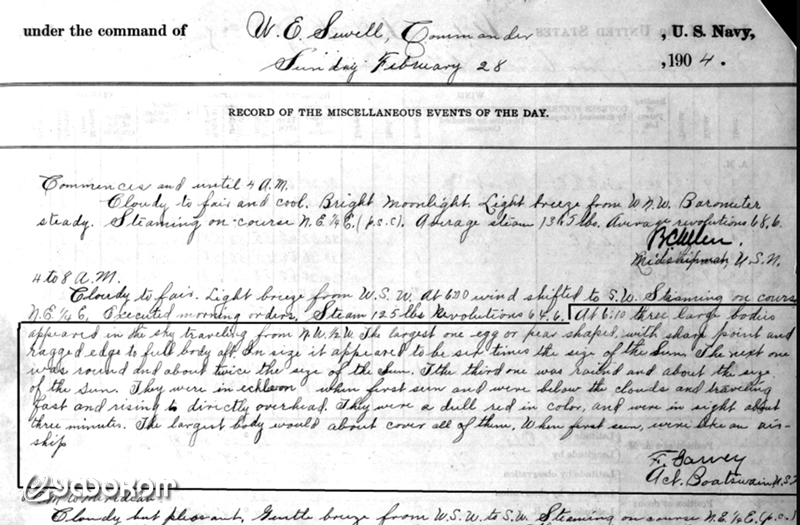 under the command of W. E. Sewell, Commander, U. S. Navy,
Sunday February 28, 1904.
RECORD OF THE MISCELLANEOUS EVENTS OF THE DAY.
Commences and until 4 A.M.
Cloudy to fair and cool. Bright Moonlight. Light breeze from W.N.W. Barometer
steady. Steaming on course N.E.¼E.(p.s.c). Average steam 136.5 lbs. Average revolutions 68.6.
Midshipman, U.S.N.
4 to 8 A.M.
Cloudy to fair. Light breeze from W.S.W. At 6:00 wind shifted to S.W. Steaming on course
N.E.¼E. Executed morning orders, Steam 125 lbs Revolutions 64.6. At 6:10 three large bodies
appeared in the sky traveling from N.W.½W. The largest one egg or pear shaped, with sharp point and
ragged edge to full body aft. In size it appeared to be six times the size of the Sun. The next one
was round and about twice the size of the Sun. The third one was round and about the size
of the Sun. They were in echelon when first seen and were below the clouds and traveling
fast and rising to directly overhead. They were a dull red in color, and were in sight about
three minutes. The largest body would about cover all of them. When first seen, were like an air-
ship
F. Garvey
Act. Boatswain U.S.
Cloudy but pleasant, Gentle breeze from W.S.W. to S.W. Steaming on course N.E.¼E.(p.s.c.)